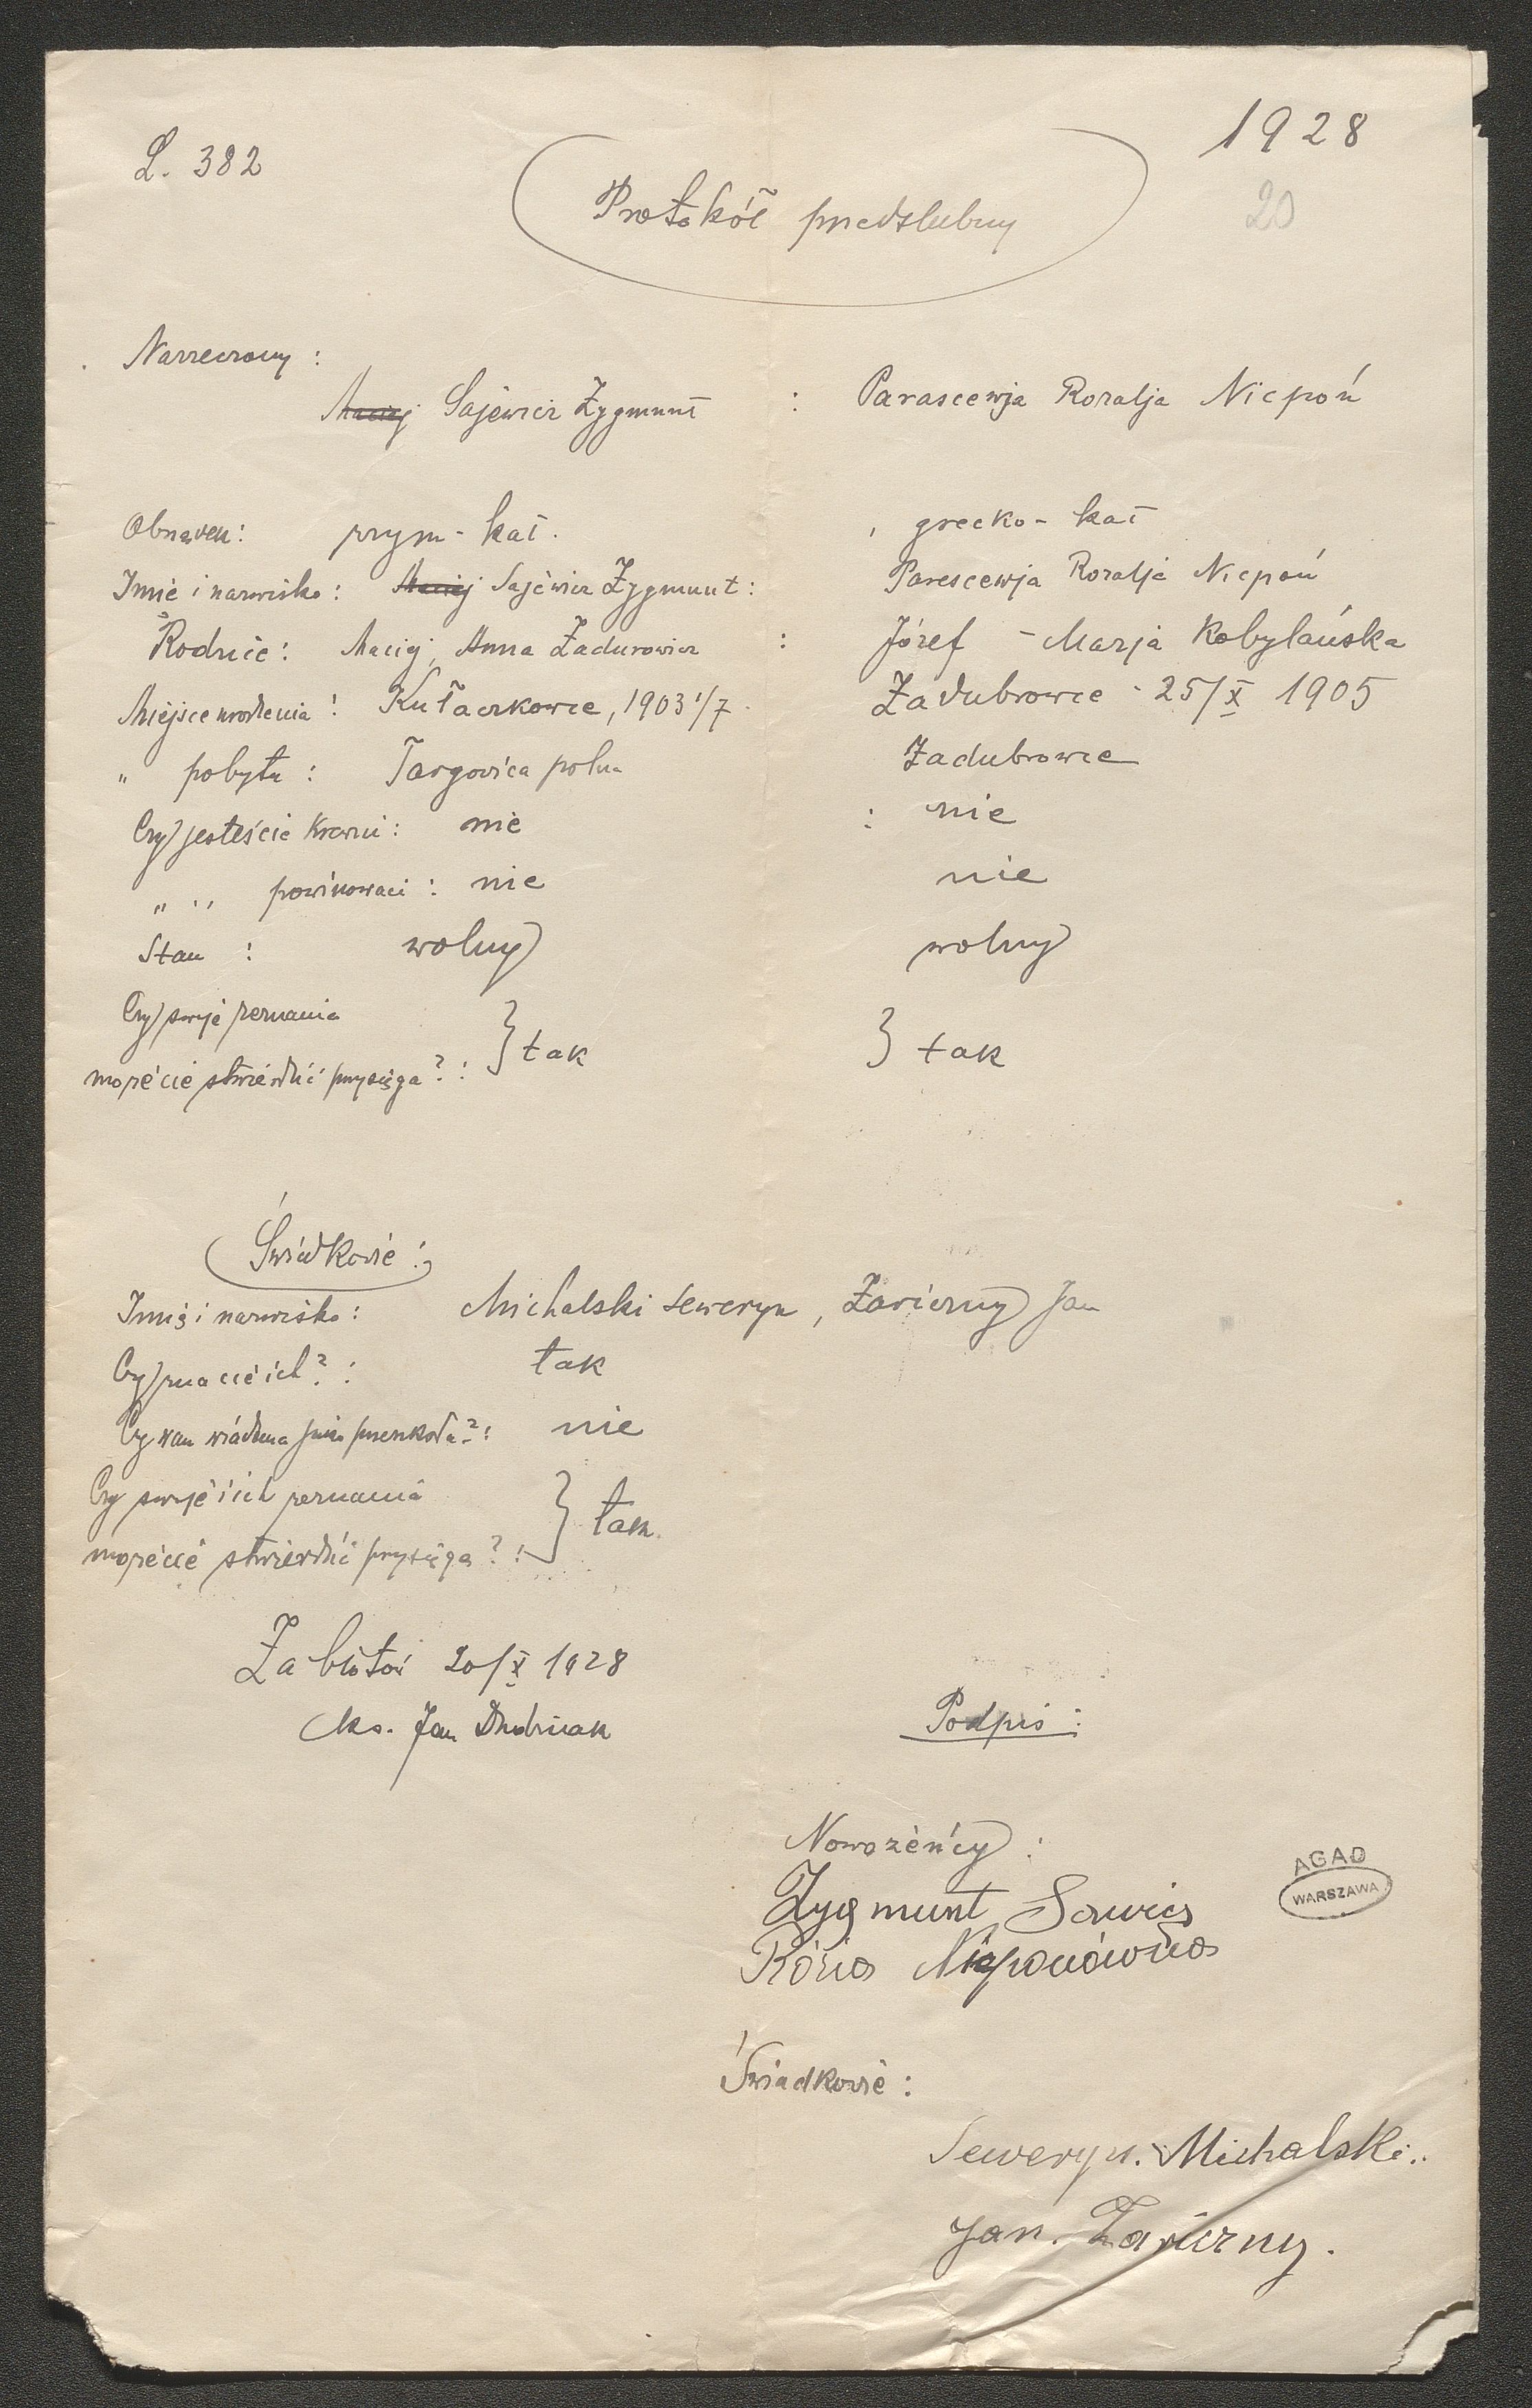 L. 382
1928
20
Protokół przedślubny
Narzeczony :
Maciej Sajewicz Zygmunt : Parascewja Rozalja Niepoń
Obrządek : rzym - kat. , grecko - kat
Imie i nazwisko : Maciej Sajewicz Zygmunt : Parescewja Rozalja Niepoń
Rodzice : Maciej, Anna Zadurowicz : Józef - Marja Kobylańska
Miejsce urodzenia : Kułaczkowce, 1903 1/7 Zadubrowce - 25/X 1905
" pobytu : Targowica polna Zadubrowce
Czy jesteście krewni : nie : nie
" " powinowaci : nie nie
Stan : wolny wolny
Czy swoje zeznania
możecie stwierdzić przysięgą ? : } tak } tak
Świadkowie :
Imię i nazwisko : Michalski Seweryn, Zawierny Jan
Czy znacie ich ? : tak
Czy wam wiadoma jaka przeszkoda ? : nie
Czy swoje i ich zeznania
możecie stwierdzić przysięgą ? : } tak
Zabłotów 20/X 1928
ks. Jan
Podpis :
Nowożeńcy :
Zygmunt Sawicz
Rózia Nieponiówna
AGAD
WARSZAWA
Świadkowie :
Seweryn. Michalski..
Jan. Zawierny.